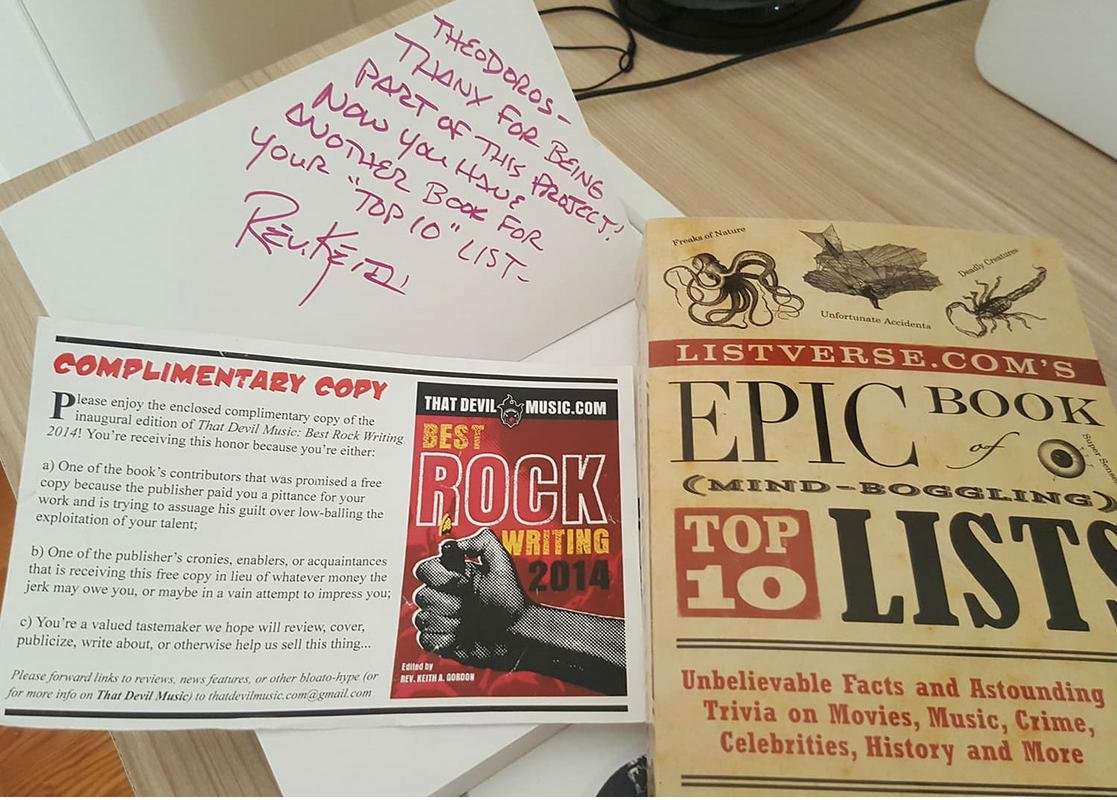 THEODOROS-
THANX FOR BEING
PART OF THIS PROJECT!
NOW YOU HAVE
ANOTHER BOOK FOR
YOUR "TOP 10" LIST-
REV. KEITH
COMPLIMENTARY COPY
Please enjoy the enclosed complimentary copy of the
inaugural edition of That Devil Music: Best Rock Writing
2014! You're receiving this honor because you're either:
a) One of the book's contributors that was promised a free
copy because the publisher paid you a pittance for your
work and is trying to assuage his guilt over low-balling the
exploitation of your talent;
b) One of the publisher's cronies, enablers, or acquaintances
that is receiving this free copy in lieu of whatever money the
jerk may owe you, or maybe in a vain attempt to impress you;
c) You're a valued tastemaker we hope will review, cover,
publicize, write about, or otherwise help us sell this thing...
Please forward links to reviews, news features, or other bloato-hype (or
for more info on That Devil Music) to thatdevilmusic.com@gmail.com
THAT DEVIL MUSIC.COM
BEST
ROCK
WRITING
2014
Edited by
REV. KEITH A. GORDON
Freaks of Nature
Unfortunate Accidents
Deadly Creatures
LISTVERSE.COM'S
EPIC BOOK
of
Super Sens
(MIND-BOGGLING)
TOP
10
LISTS
Unbelievable Facts and Astounding
Trivia on Movies, Music, Crime,
Celebrities, History and More